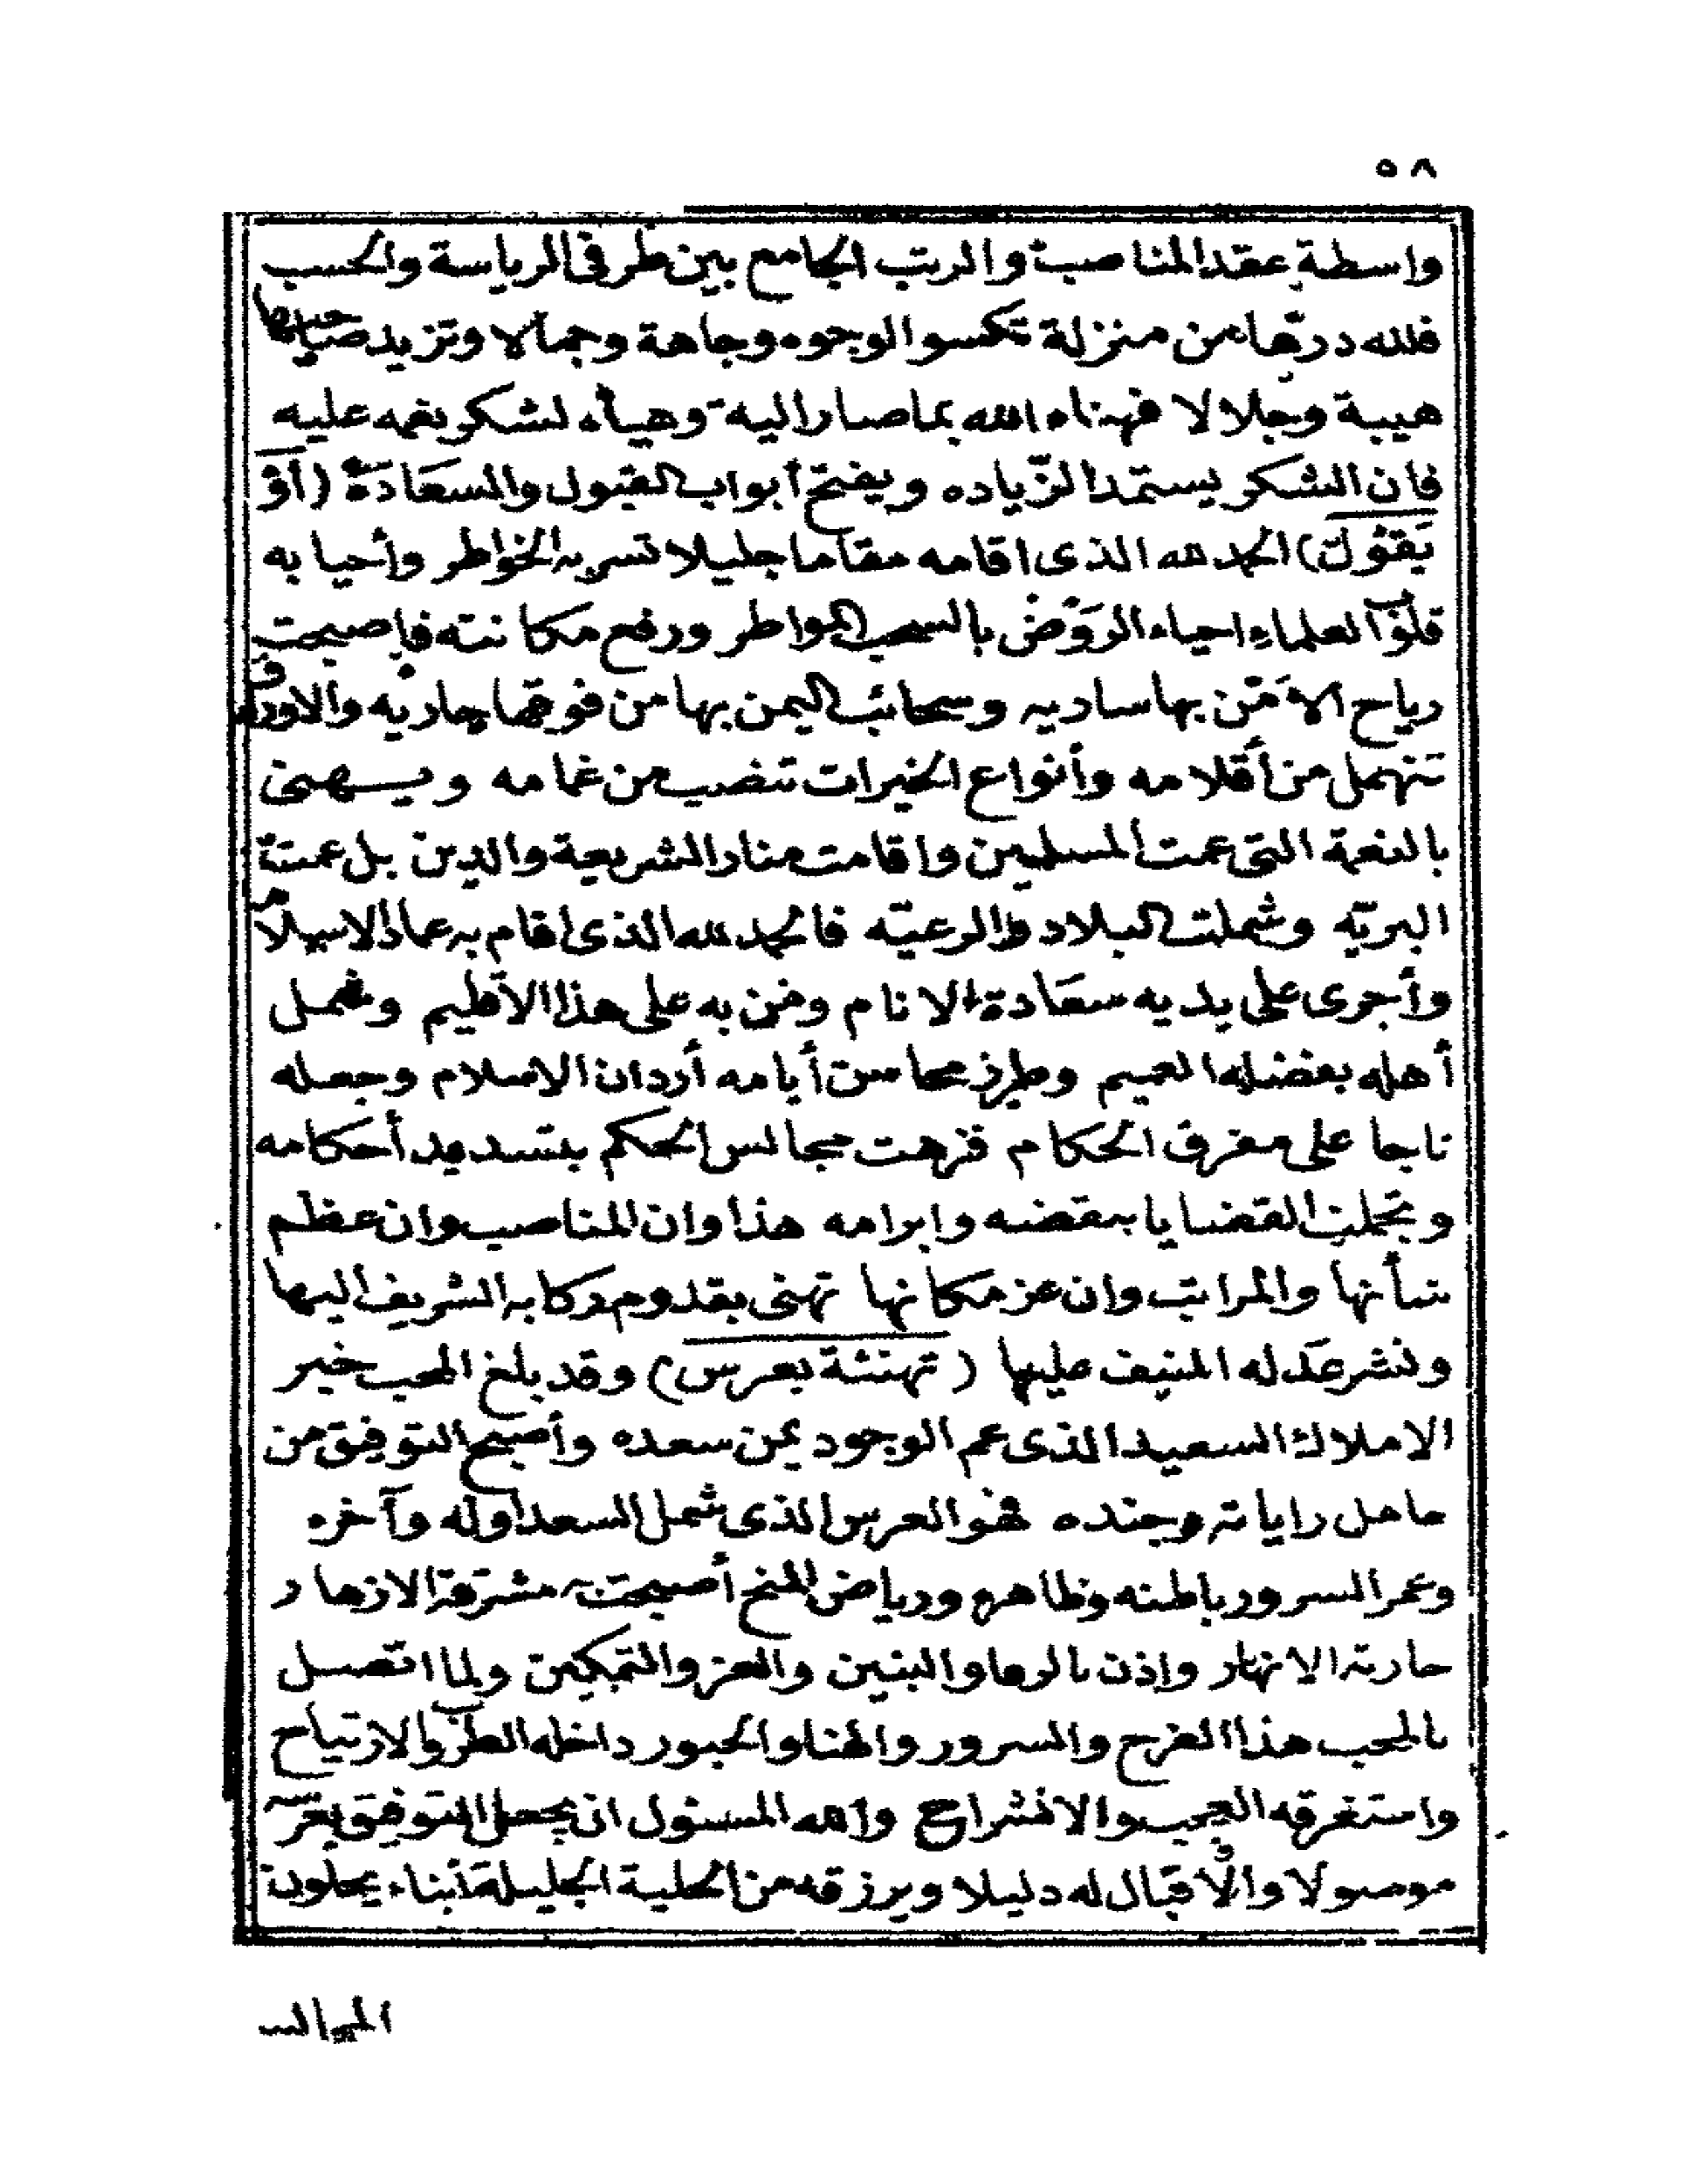 ٥٨
واسطة عقد المناصب والرتب الجامع بين طرفى الرياسة والحسب
فلله درها من منزلة تكسوا الوجوه وجاهة وجمالا وتزيد صباحها
هيبة وجلالا فهناه الله بما صار اليه وهيأه لشكر نعمه عليه
فان الشكر يستمد الزّياده ويفتح أبواب القبول والسعادة (أو
يقول) الحمد لله الذى اقامه مقاما جليلا تسر به الخواطر وأحيا به
قلوب العلماء احياء الروض بالسحب المواطر ورفع مكانته فاصبحت
رياح الأمن بها ساريه وسحائب اليمن بها من فوقها جاريه والاوراق
تنهمل من أقلامه وأنواع الخيرات تنضب من غمامه ويسهنى
بالنعمة التى عمت المسلمين واقامت منار الشريعة والدين بل عمت
البريّه وشملت البلاد والرعيّه فالحمد لله الذى اقام به عماد الاسلام
وأجرى على يديه سعادة الانام ومن به على هذا الأقليم وشمل
أهله بفضله العميم وطرز محاسن أيامه أردان الاسلام وجعله
تاجا على مفرق الحكام فزهت مجالس الحكم بتسديد أحكامه
وتجملت القضايا بنقضه وابرامه هذا وان المناصب وان عظم
شأنها والمراتب وان عز مكانها تهنى بقدوم ركابه الشريف اليها
ونشر عدله المنيف عليها (تهنئة بعرس) وقد بلغ المحب خبر
الاملاك السعيد الذى عم الوجود يمن سعده وأصبح التوفيق من
حامل راياته وجنده فهو العرس الذى شمل السعد أوله وآخره
وعمر السرور باطنه وظاهره ورياض المنح أصبحت مشرقة الازهار
جارية الانهار واذن بالرفا والبنين والعز والتمكين ولما اتصل
بالمحب هذا الفرح والسرور والهنا والحبور داخله الطرب والارتياح
واستغرقه العجب والانشراح والله المسئول ان يجعل التوفيق بعرسه
موصولا والاقبال له دليلا ويرزقه من الحلية الجليلة أبناء يحلون
المجالس